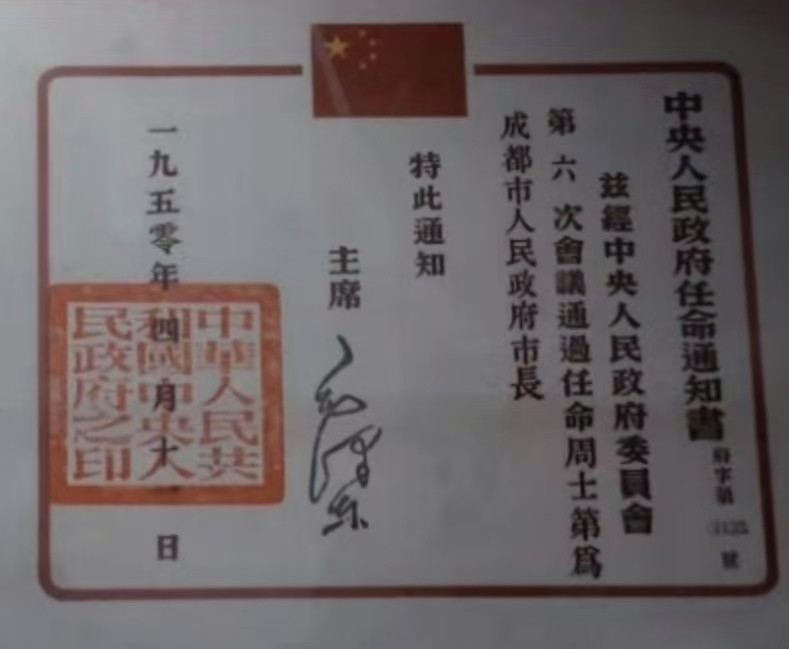 中央人民政府任命通知書
府字第
號
兹經中央人民政府委員會
第六次會議通過任命周士第爲
成都市人民政府市長
特此通知
主席 毛澤东
一九五零年四月十一日
中華人民共
和國中央人
民政府之印